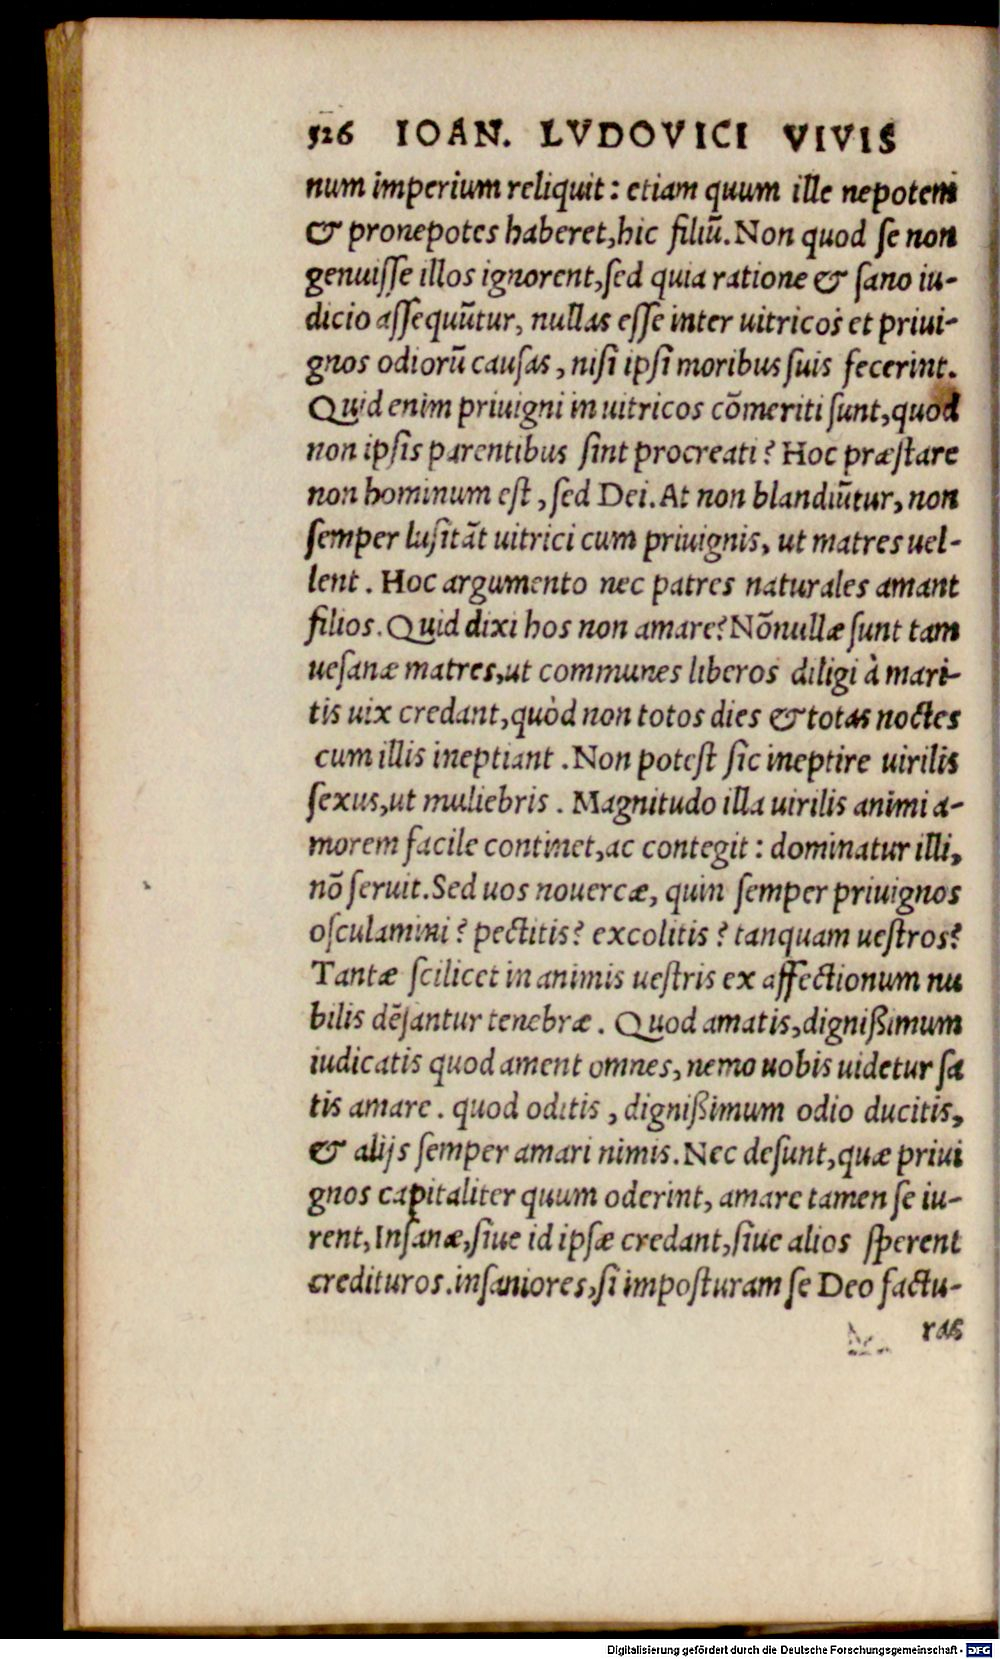 526 IOAN. LVDOVICI VIVIS
num imperium reliquit: etiam quum ille nepotem
& pronepotes haberet, hic filiū. Non quod se non
genuisse illos ignorent, sed quia ratione & sano iu-
dicio assequūtur, nullas esse inter uitricos et priui-
gnos odiorū causas, nisi ipsi moribus suis fecerint.
Quid enim priuigni in uitricos cōmeriti sunt, quod
non ipsis parentibus sint procreati? Hoc præstare
non hominum est, sed Dei. At non blandiūtur, non
semper lusitāt uitrici cum priuignis, ut matres uel-
lent. Hoc argumento nec patres naturales amant
filios. Quid dixi hos non amare? Nōnullæ sunt tam
uesanæ matres, ut communes liberos diligi à mari-
tis uix credant, quòd non totos dies & totas noctes
cum illis ineptiant. Non potest sic ineptire uirilis
sexus, ut muliebris. Magnitudo illa uirilis animi a-
morem facile continet, ac contegit: dominatur illi,
nō seruit. Sed uos nouercæ, quin semper priuignos
osculamini? pectitis? excolitis? tanquam uestros?
Tantæ scilicet in animis uestris ex affectionum nu
bilis dēsantur tenebræ. Quod amatis, dignißimum
iudicatis quod ament omnes, nemo uobis uidetur sa
tis amare. quod oditis, dignißimum odio ducitis,
& alijs semper amari nimis. Nec desunt, quæ priui
gnos capitaliter quum oderint, amare tamen se iu-
rent, Insanæ, siue id ipsæ credant, siue alios sperent
credituros. insaniores, si imposturam se Deo factu-
ras
Digitalisierung gefördert durch die Deutsche Forschungsgemeinschaft - DFG